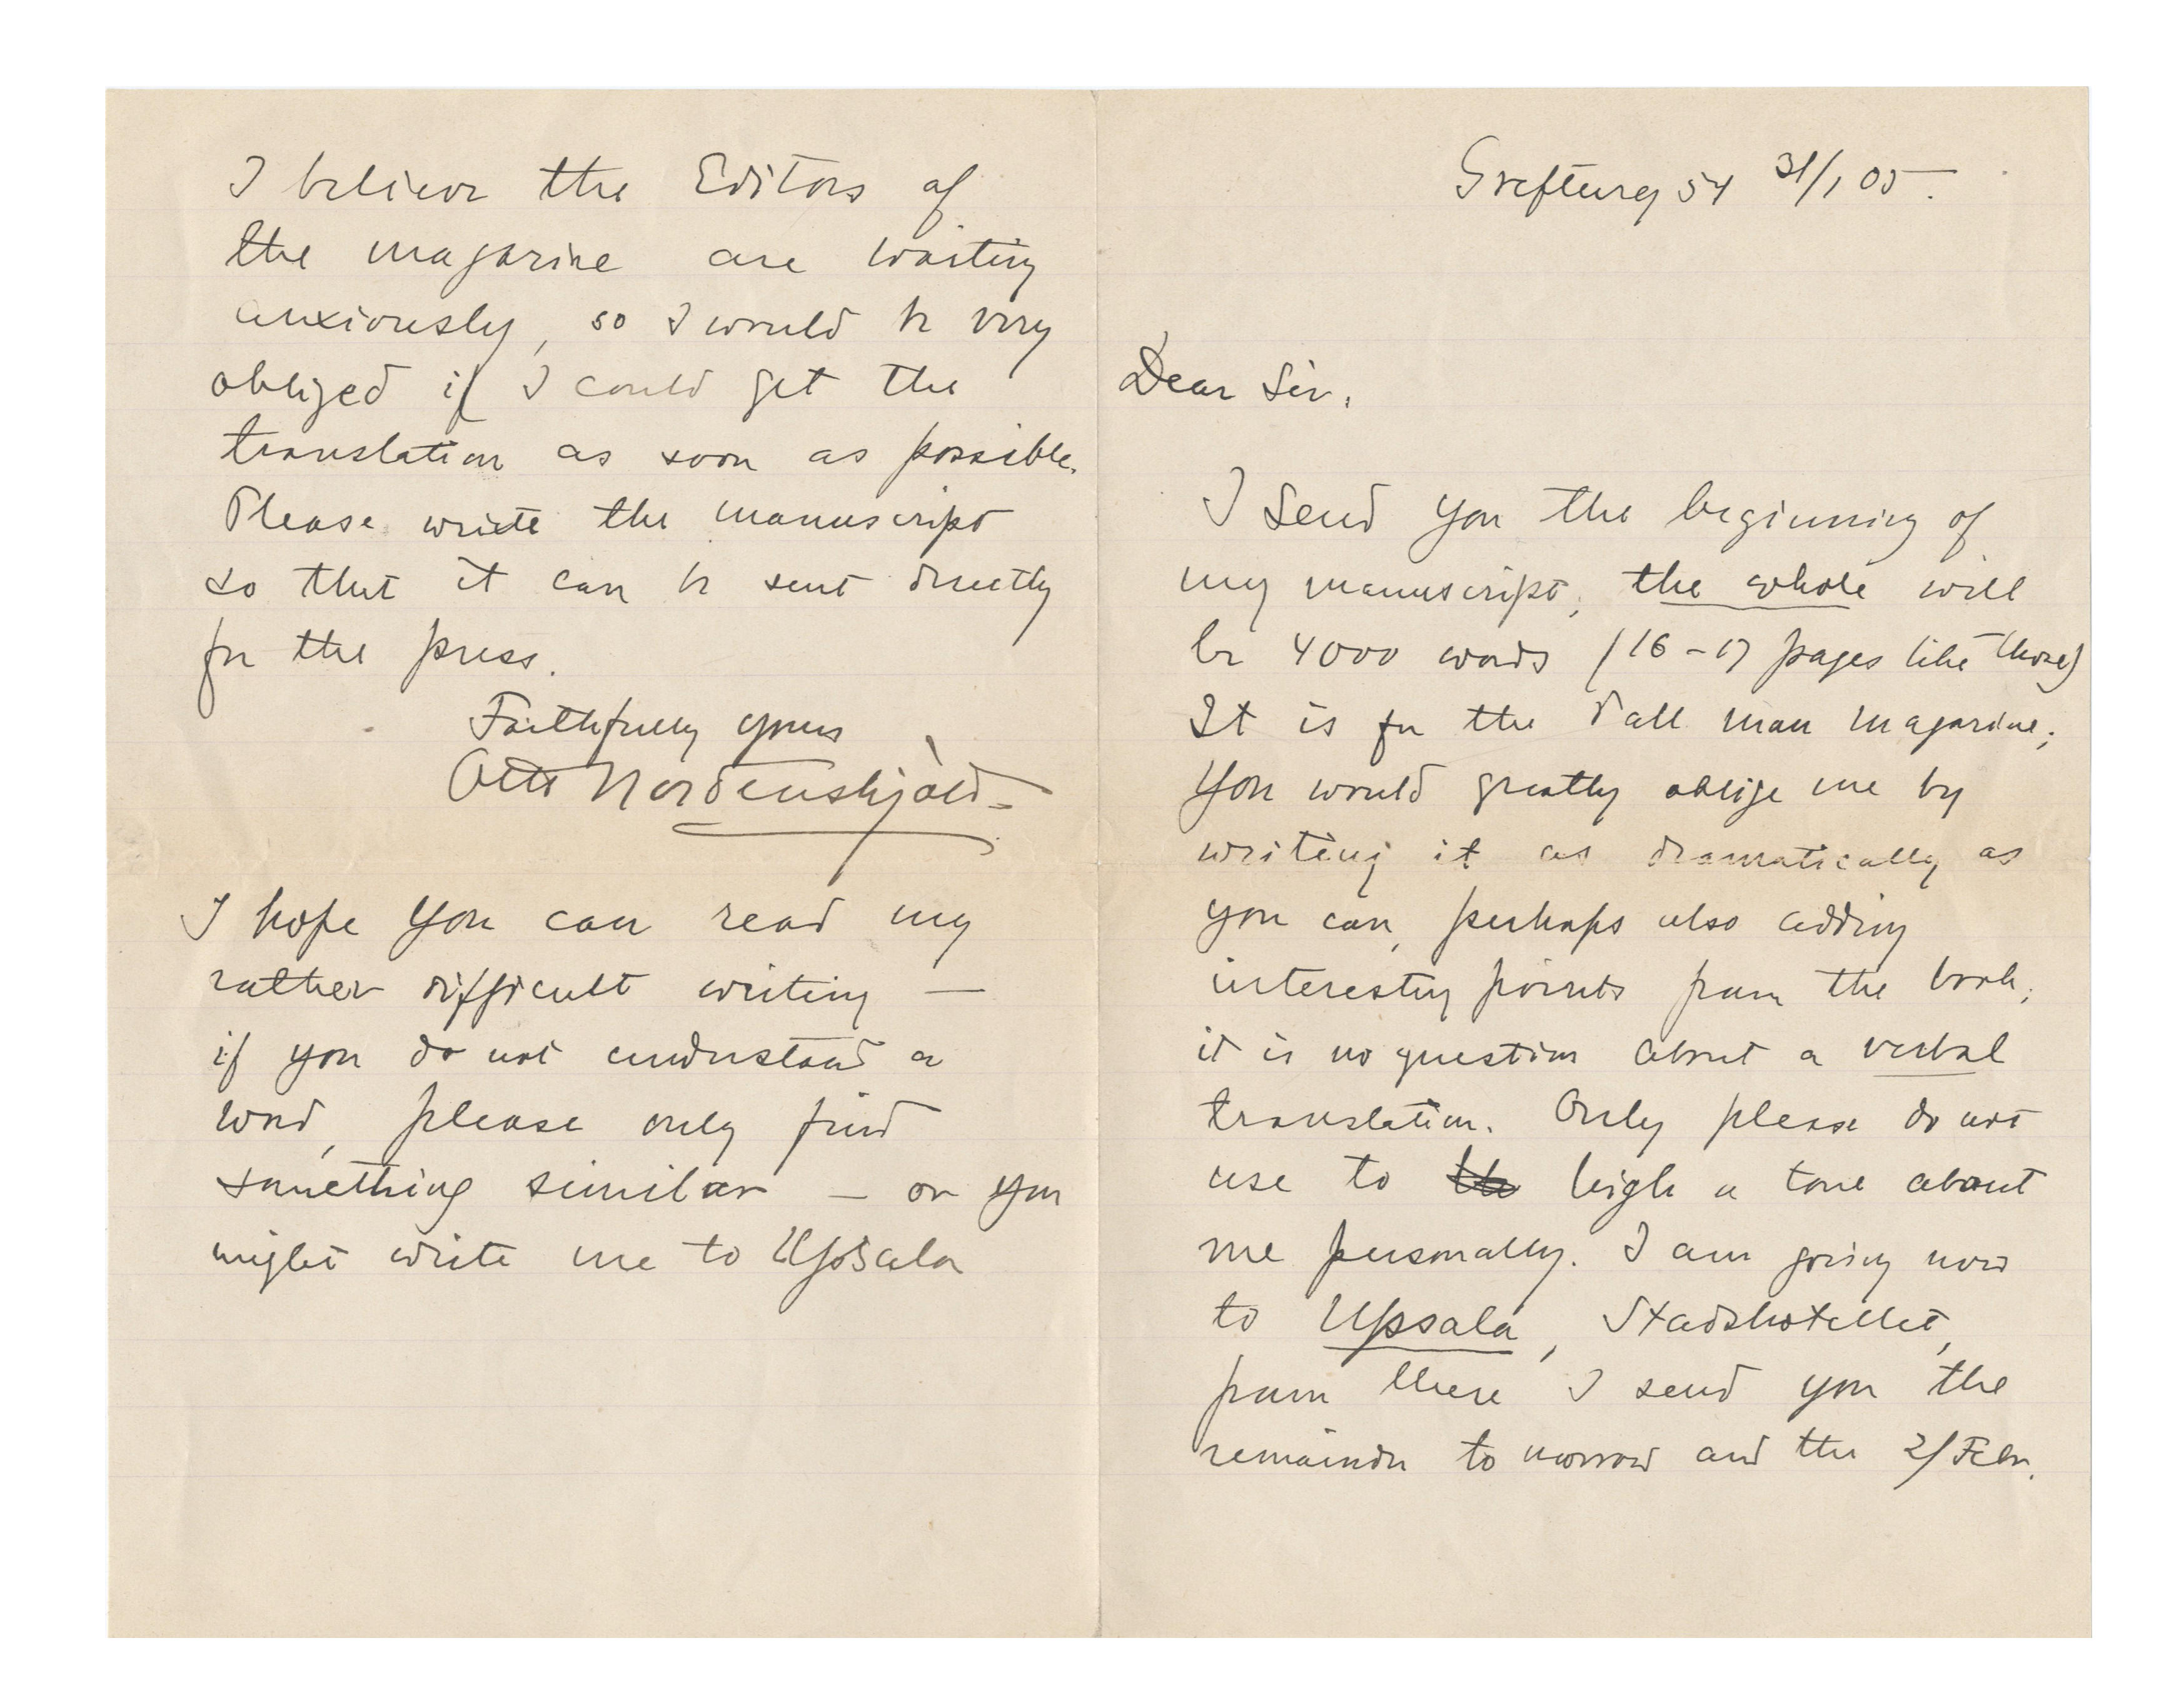 Greftureg 54 31/1 05.
Dear Sir.
I send you the beginning of
my manuscript; the whole will
be 4000 words (16-17 pages like those)
It is for the Pall man magazine;
You would greatly oblige me by
writing it as dramatically as
you can, perhaps also adding
interesting points from the book;
it is no question about a verbal
translation. Only please do not
use to the high a tone about
me personally. I am going now
to Upsala, Stadshotellet,
from there I send you the
remainder to morrow and the 2/Febr.
I believe the Editors of
the magazine are waiting
anxiously, so I would be very
obliged if I could get the
translation as soon as possible.
Please write the manuscript
so that it can be sent directly
for the press.
Faithfully yours
Otto Nordenskjöld
I hope you can read my
rather difficult writing —
if you do not understand a
word, please only find
something similar — or you
might write me to Upsala